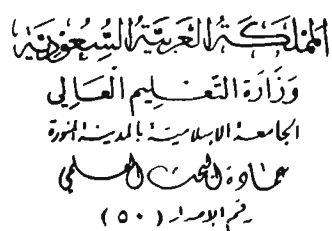 المملكة العربية السعودية
وزارة التعليم العالي
الجامعة الإسلامية بالمدينة المنورة
عمادة البحث العلمي
رقم الإصدار ( ٥٠ )